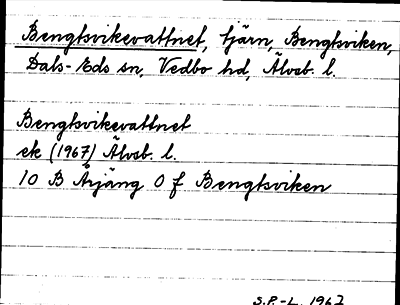 Bengtsvikevattnet, tjärn, Bengtsviken,
Dals-Eds sn, Vedbo hd, Älvsb. l.
Bengtsvikevattnet
ek (1967) Älvsb. l.
10 B Årjäng O f Bengtsviken
S.P.-L. 1967